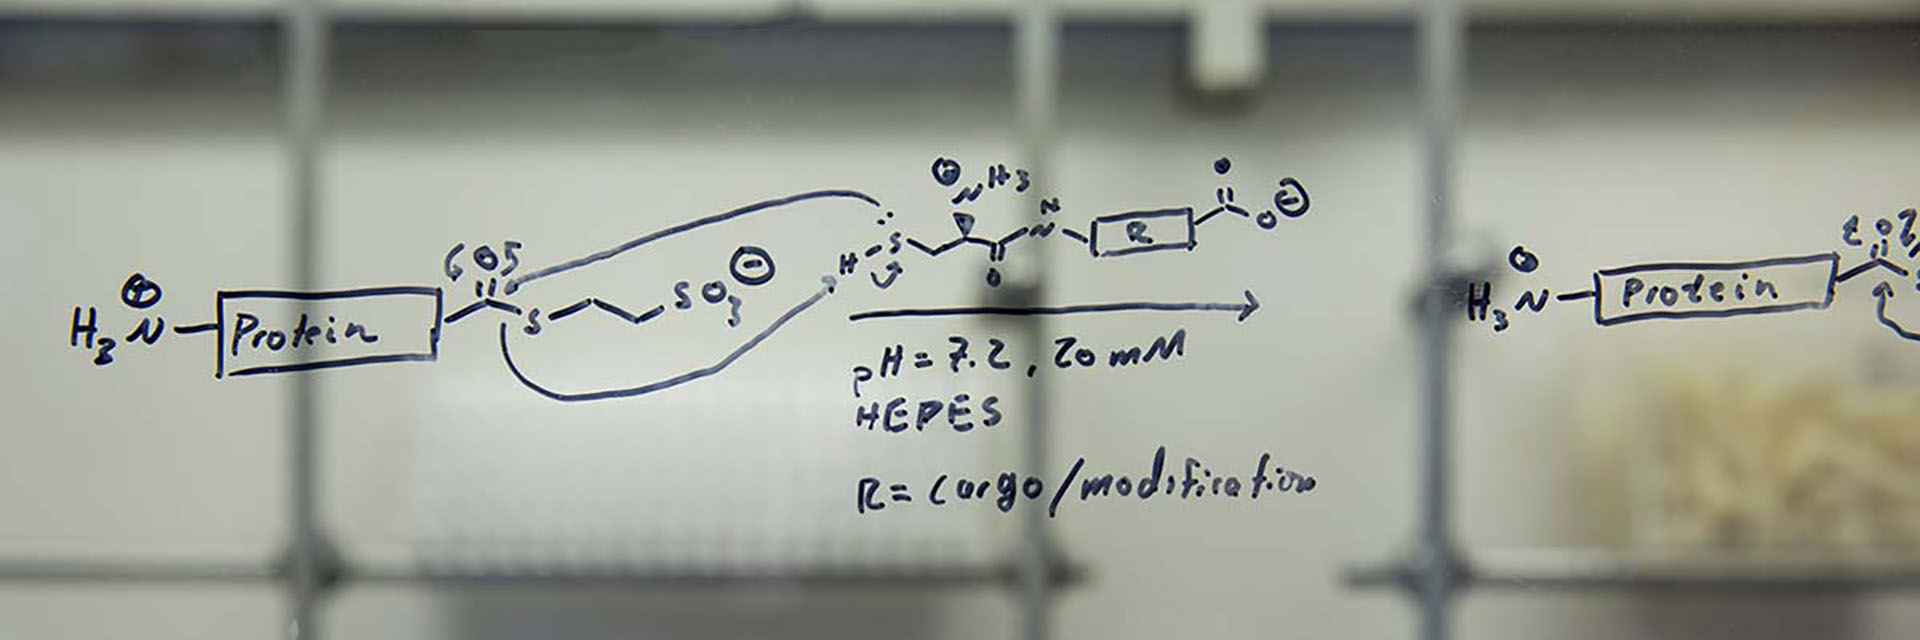 H₃N⊕ Protein S SO₃⊖
H S ⊕NH₃ O N H R O O⊖
pH = 7.2, 20 mM
HEPES
R = Cargo/modification
H₃N⊕ Protein